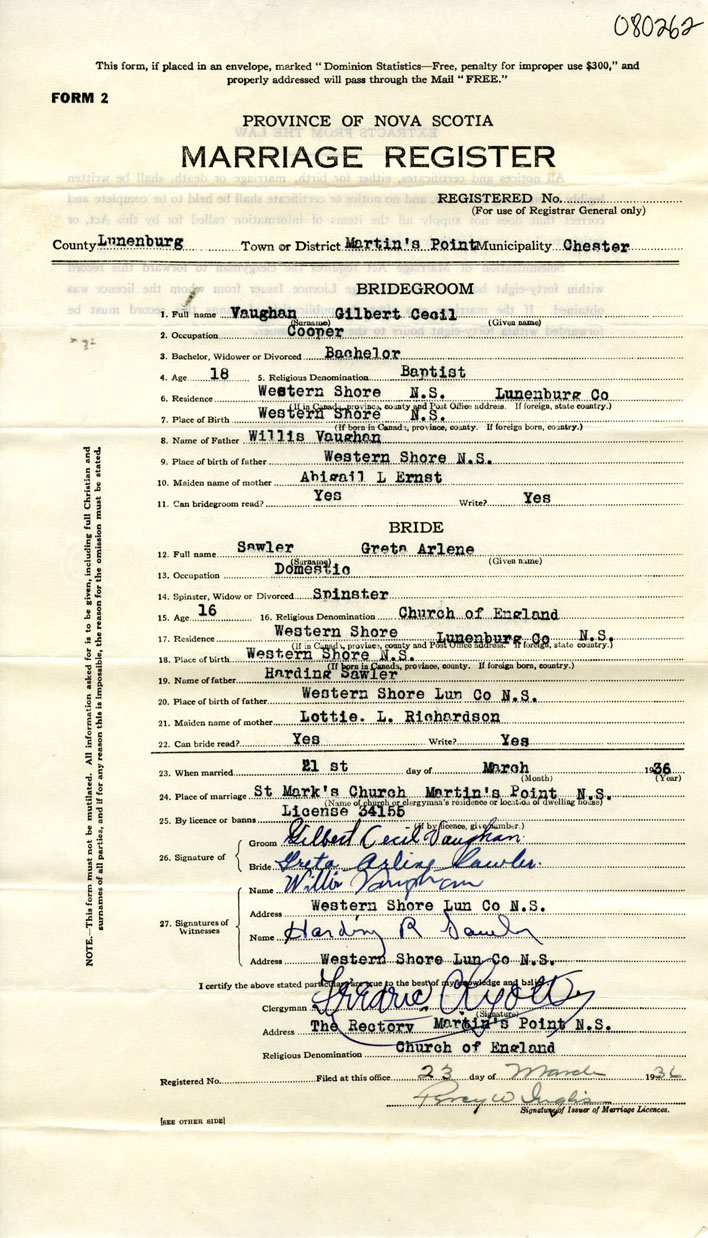 080262
This form, if placed in an envelope, marked "Dominion Statistics—Free, penalty for improper use $300," and
properly addressed will pass through the Mail "FREE."
FORM 2
PROVINCE OF NOVA SCOTIA
MARRIAGE REGISTER
REGISTERED No.
(For use of Registrar General only)
County Lunenburg Town or District Martin's Point Municipality Chester
BRIDEGROOM
1. Full name Vaughan Gilbert Cecil
(Surname) (Given name)
2. Occupation Cooper
3. Bachelor, Widower or Divorced Bachelor
4. Age 18 5. Religious Denomination Baptist
6. Residence Western Shore N.S. Lunenburg Co
(If in Canada, province, county and Post Office address. If foreign, state country.)
7. Place of Birth Western Shore N.S.
(If born in Canada, province, county. If foreign born, country.)
8. Name of Father Willis Vaughan
9. Place of birth of father Western Shore N.S.
10. Maiden name of mother Abigail L Ernst
11. Can bridegroom read? Yes Write? Yes
BRIDE
12. Full name Sawler Greta Arlene
(Surname) (Given name)
13. Occupation Domestic
14. Spinster, Widow or Divorced Spinster
15. Age 16 16. Religious Denomination Church of England
17. Residence Western Shore Lunenburg Co N.S.
(If in Canada, province, county and Post Office address. If foreign, state country.)
18. Place of birth Western Shore N.S.
(If born in Canada, province, county. If foreign born, country.)
19. Name of father Harding Sawler
20. Place of birth of father Western Shore Lun Co N.S.
21. Maiden name of mother Lottie. L. Richardson
22. Can bride read? Yes Write? Yes
23. When married 21 st day of March 1936
(Month) (Year)
24. Place of marriage St Mark's Church Martin's Point N.S.
(Name of church or clergyman's residence or location of dwelling house)
25. By licence or banns License 34155
(If by licence, give number.)
26. Signature of Groom Gilbert Cecil Vaughan
Bride Greta Arline Sawler.
27. Signatures of Witnesses
Name Willis Vaughan
Address Western Shore Lun Co N.S.
Name Harding R Sawler
Address Western Shore Lun Co N.S.
I certify the above stated particulars are true to the best of my knowledge and belief.
Clergyman
(Signature)
Address The Rectory Martin's Point N.S.
Religious Denomination Church of England
Registered No. Filed at this office 23 day of March 1936
Percy W Inglis
Signature of Issuer of Marriage Licences.
[SEE OTHER SIDE]
NOTE.—This form must not be mutilated. All information asked for is to be given, including full Christian and
surnames of all parties, and if for any reason this is impossible, the reason for the omission must be stated.